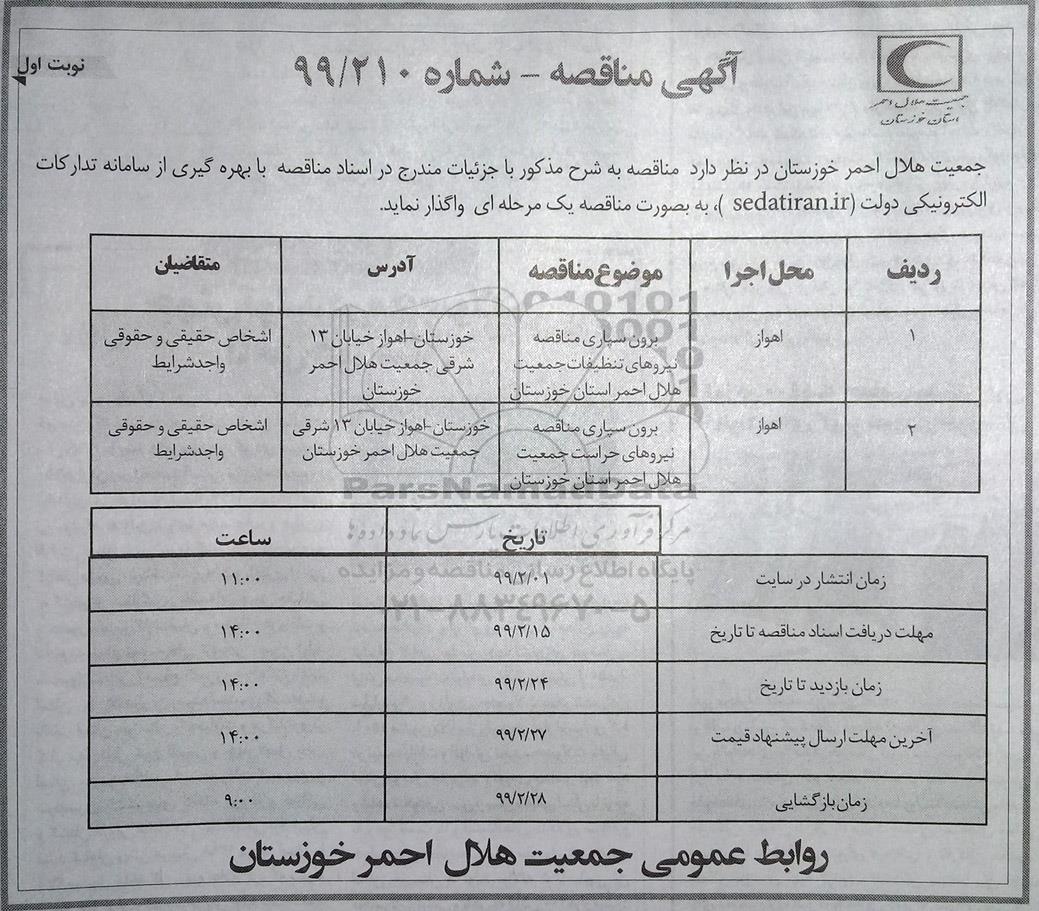 جمعیت هلال احمر
استان خوزستان
آگهی مناقصه - شماره ۹۹/۲۱۰
نوبت اول
جمعیت هلال احمر خوزستان در نظر دارد مناقصه به شرح مذکور با جزئیات مندرج در اسناد مناقصه با بهره گیری از سامانه تدارکات
الکترونیکی دولت (sedatiran.ir )، به بصورت مناقصه یک مرحله ای واگذار نماید.
ردیف محل اجرا موضوع مناقصه آدرس متقاضیان
۱ اهواز برون سپاری مناقصه خوزستان-اهواز خیابان ۱۳ اشخاص حقیقی و حقوقی
نیروهای تنظیفات جمعیت شرقی جمعیت هلال احمر واجدشرایط
هلال احمر استان خوزستان خوزستان
۲ اهواز برون سپاری مناقصه خوزستان-اهواز خیابان ۱۳ شرقی اشخاص حقیقی و حقوقی
نیروهای حراست جمعیت جمعیت هلال احمر خوزستان واجدشرایط
هلال احمر استان خوزستان
ParsNamadData
مرکز فرآوری اطلاعات پارس نماد داده ها
پایگاه اطلاع رسانی مناقصه و مزایده
۰۲۱-۸۸۳۴۹۶۷۰-۵
تاریخ ساعت
زمان انتشار در سایت ۹۹/۲/۰۱ ۱۱:۰۰
مهلت دریافت اسناد مناقصه تا تاریخ ۹۹/۲/۱۵ ۱۴:۰۰
زمان بازدید تا تاریخ ۹۹/۲/۲۴ ۱۴:۰۰
آخرین مهلت ارسال پیشنهاد قیمت ۹۹/۲/۲۷ ۱۴:۰۰
زمان بازگشایی ۹۹/۲/۲۸ ۹:۰۰
روابط عمومی جمعیت هلال احمر خوزستان